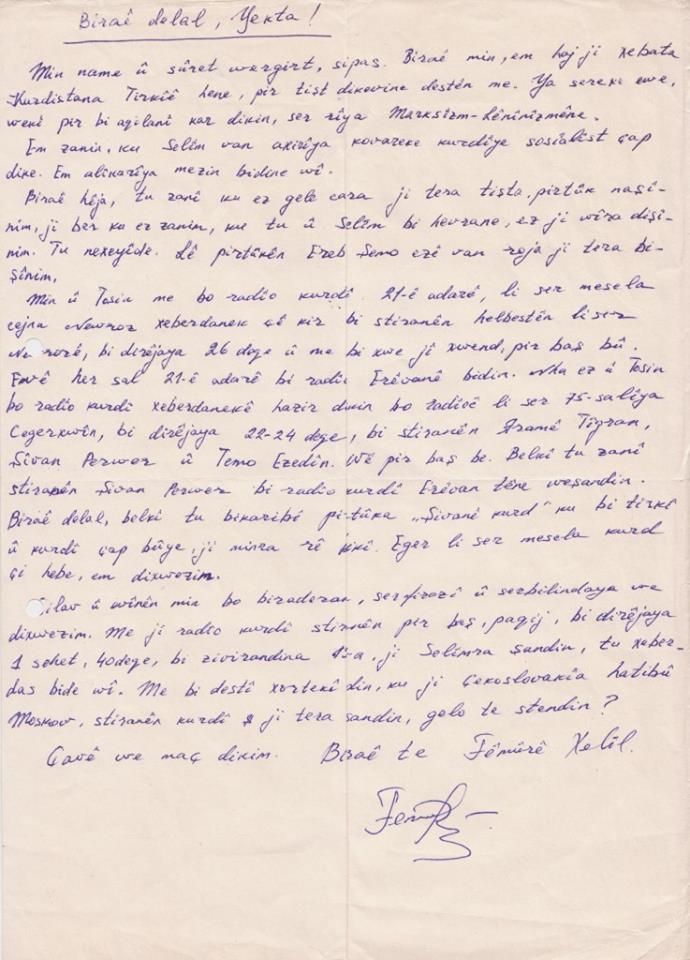 Biraê delal, Yekta!
Min name û sûret wergirt, sipas. Biraê min, em haj ji xebata
Kurdistana Tirkiê hene, pir tist dikevine destên me. Ya serexe ewe,
wekî pir bi aqilani kar dikin, ser rîya Marksizm-Lênînîzmêne.
Em zanin, ku Selîm van axirîya kovareke kurdîye sosialîst çap
dike. Em alîkarîya mezin bidine wî.
Biraê hêja, tu zanî ku ez gele cara ji tera tişta, pirtûk naşî-
nim, ji ber ku ez zanim, ku tu û Selîm bi hevrane, ez ji wîra dişî-
nim. Tu nexeyîde. Lê pirtûkên Ereb Şemo ezê van roja ji tera bi-
şînim,
Min û Tosin me bo radîo kurdî 21-ê adarê, li ser mesela
cejna Newroz xeberdanek çê kir bi stiranên helbestên liser
Newrozê, bi dirêjaya 26 deqe û me bi xwe jî xwend, pir baş bû.
Emê her sal 21-ê adarê bi radîo Erêvanê bidin. Nha ez û Tosin
bo radîo kurdî xeberdanekê hazir dikin bo radîoê li ser 75-salîya
Cegerxwîn, bi dirêjaya 22-24 deqe, bi stiranên Aramê Tîgran,
Şivan Perwer û Temo Ezedîn. Wê pir baş be. Belkî tu zanî
stiranên Şivan Perwer bi radîo kurdî Erêvan têne weşandin.
Biraê delal, belkî tu bikaribî pirtûka „Şivanê kurd" ku bi tirkî
û kurdî çap bûye, ji minra rê kî. Eger li ser mesela kurd
çi hebe, em dixwezim.
Silav û wînên min bo biraderan, serfirazî û serbilindaya we
dixwezim. Me ji radîo kurdî stiranên pir baş, paqij, bi dirêjaya
1 sehet, 40deqe, bi zivirandina, ji Selîmra şandin, tu xeber-
das bide wî. Me bi destî xortekî din, ku ji Çekoslovakîa hatibû
Moskov, stiranên kurdî ji tera şandin, gelo te stendin?
Çavê we maç dikim. Biraê te Têmûrê Xelîl.